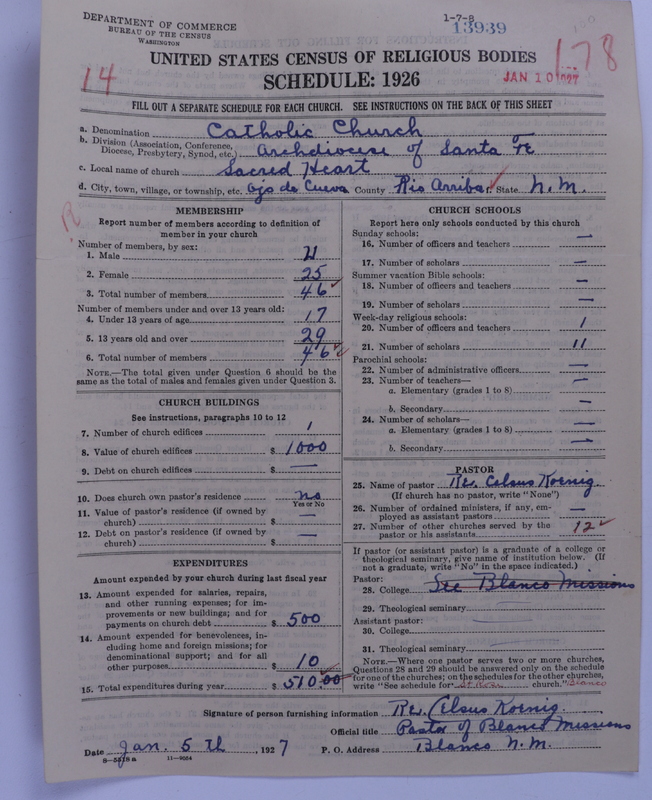 DEPARTMENT OF COMMERCE
BUREAU OF THE CENSUS
WASHINGTON
1-7-8
13939
UNITED STATES CENSUS OF RELIGIOUS BODIES
178
14
SCHEDULE: 1926
JAN 10 1927
FILL OUT A SEPARATE SCHEDULE FOR EACH CHURCH. SEE INSTRUCTIONS ON THE BACK OF THIS SHEET
a. Denomination Catholic Church
b. Division (Association, Conference, Diocese, Presbytery, Synod, etc.) Archdiocese of Santa Fe
c. Local name of church Sacred Heart
d. City, town, village, or township, etc. Ojo de Cueva County Rio Arriba State N.M.
MEMBERSHIP
Report number of members according to definition of
member in your church
Number of members, by sex:
1. Male 21
2. Female 25
3. Total number of members 46
Number of members under and over 13 years old:
4. Under 13 years of age 17
5. 13 years old and over 29
6. Total number of members 46
NOTE.—The total given under Question 6 should be the
same as the total of males and females given under Question 3.
CHURCH BUILDINGS
See instructions, paragraphs 10 to 12
7. Number of church edifices 1
8. Value of church edifices $ 1000
9. Debt on church edifices $ —
10. Does church own pastor's residence no
Yes or No
11. Value of pastor's residence (if owned by
church) $ —
12. Debt on pastor's residence (if owned by
church) $ —
EXPENDITURES
Amount expended by your church during last fiscal year
13. Amount expended for salaries, repairs,
and other running expenses; for im-
provements or new buildings; and for
payments on church debt $ 500
14. Amount expended for benevolences, in-
cluding home and foreign missions; for
denominational support; and for all
other purposes $ 10
15. Total expenditures during year $ 510.00
CHURCH SCHOOLS
Report here only schools conducted by this church
Sunday schools:
16. Number of officers and teachers —
17. Number of scholars —
Summer vacation Bible schools:
18. Number of officers and teachers —
19. Number of scholars —
Week-day religious schools:
20. Number of officers and teachers 1
21. Number of scholars 11
Parochial schools:
22. Number of administrative officers —
23. Number of teachers— —
a. Elementary (grades 1 to 8)
b. Secondary —
24. Number of scholars—
a. Elementary (grades 1 to 8) —
b. Secondary —
PASTOR
25. Name of pastor Rev. Celsus Koenig
(If church has no pastor, write "None")
26. Number of ordained ministers, if any, em-
ployed as assistant pastors —
27. Number of other churches served by the
pastor or his assistants 12
If pastor (or assistant pastor) is a graduate of a college or
theological seminary, give name of institution below. (If
not a graduate, write "No" in the space indicated.)
Pastor:
28. College See Blanco Missions
29. Theological seminary
Assistant pastor:
30. College
31. Theological seminary
NOTE.—Where one pastor serves two or more churches,
Questions 28 and 29 should be answered only on the schedule
for one of the churches; on the schedules for the other churches,
write "See schedule for church." Blanco
Signature of person furnishing information Rev. Celsus Koenig.
Official title Pastor of Blanco Missions
Date Jan. 5 th, 1927 P. O. Address Blanco N.M.
8—5518 a 11—9064